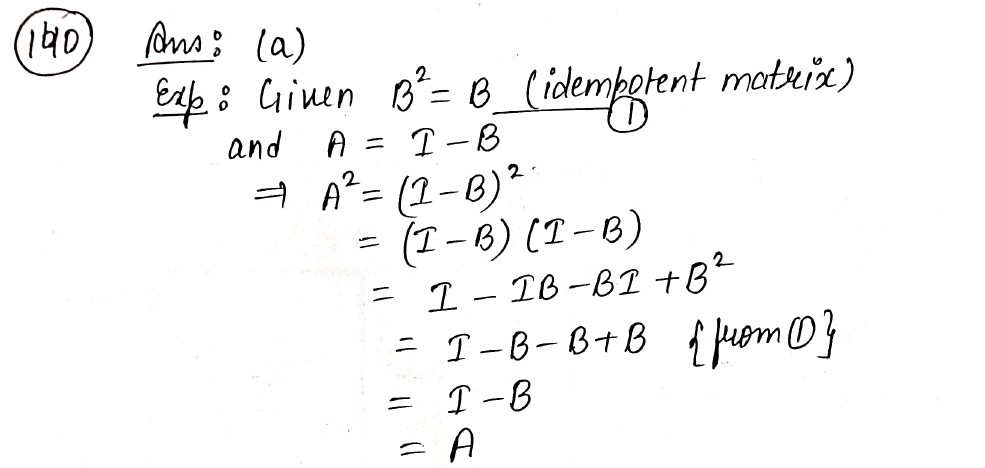 (140) Ans: (a)
Exp: Given B² = B (idempotent matrix) ①
and A = I - B
⇒ A² = (I - B)²
= (I - B) (I - B)
= I - IB - BI + B²
= I - B - B + B {from ①}
= I - B
= A